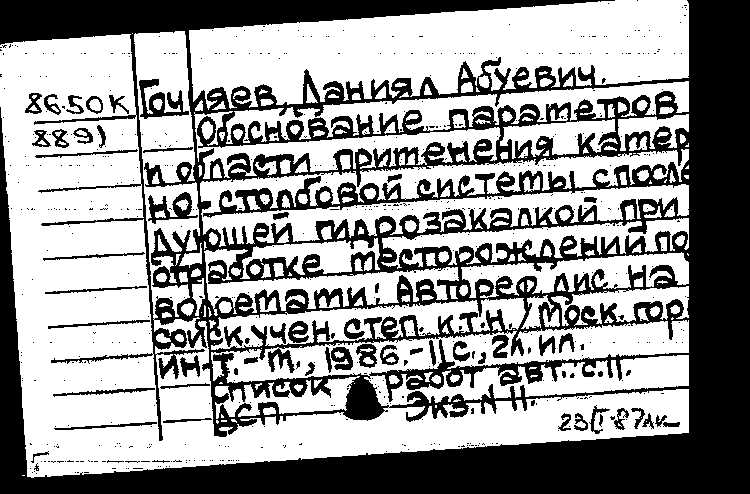 86.50К Гочияев, Даниял Абуевич.
889) Обоснование параметров
и области применения камер
но-столбовой системы с после
дующей гидрозакалкой при
отработке месторождений по
водоемами: Автореф. дис. на
соиск. учен. степ. к.т.н. / Моск. гор.
ин-т. - М., 1986. - 11 с., 2 л. ил.
Список работ авт.: с. 11.
ДСП. Экз. N 11.
23/I-87